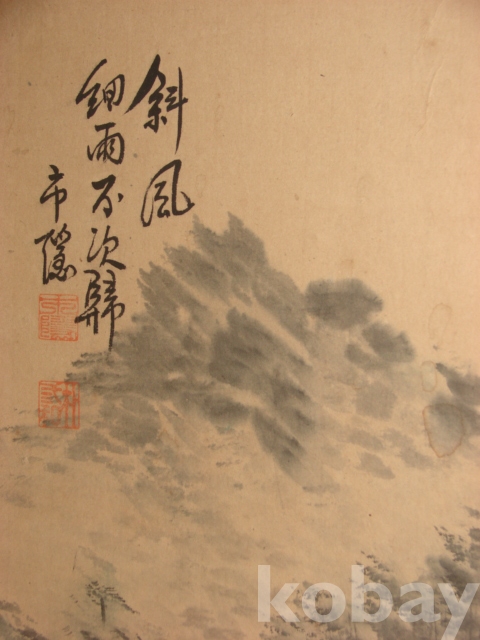 斜風
細雨不次歸
市隱
kobay